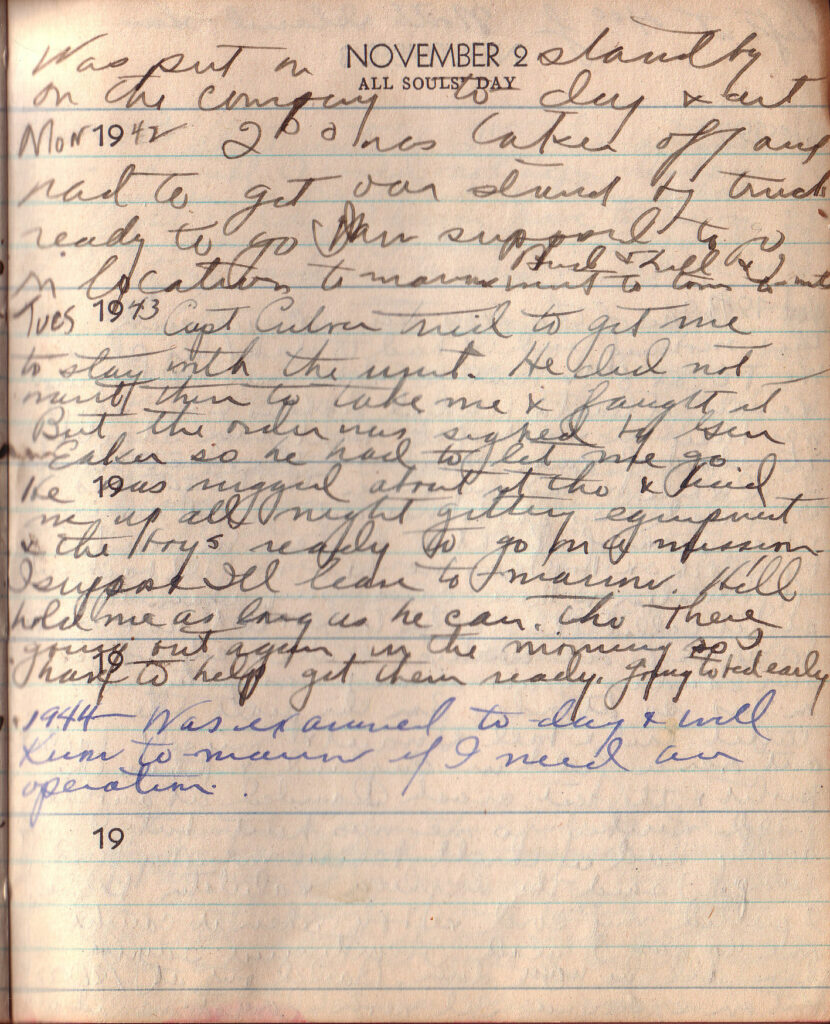 NOVEMBER 2
ALL SOULS' DAY
Was put on standby
on the company to day & at
Mon 1942 2 was taken off and
had to get our stand by truck
ready to go support to go
on location to marrow went to town
Tues 1943 Capt Culver tried to get me
to stay with the unit. He did not
want them to take me & faught it
But the order was signed by Gen
Eaker so he had to let me go
He 19 was about it tho & had
me up all night getting equipment
& the boys ready to go on a mission
I suppose Ill leave to marrow. Hell
hold me as long as he can. tho There
going out again in the morning so I
19
have to help get them ready. going to bed early
1944 Was examined to day & will
know to marrow if I need an
operation.
19